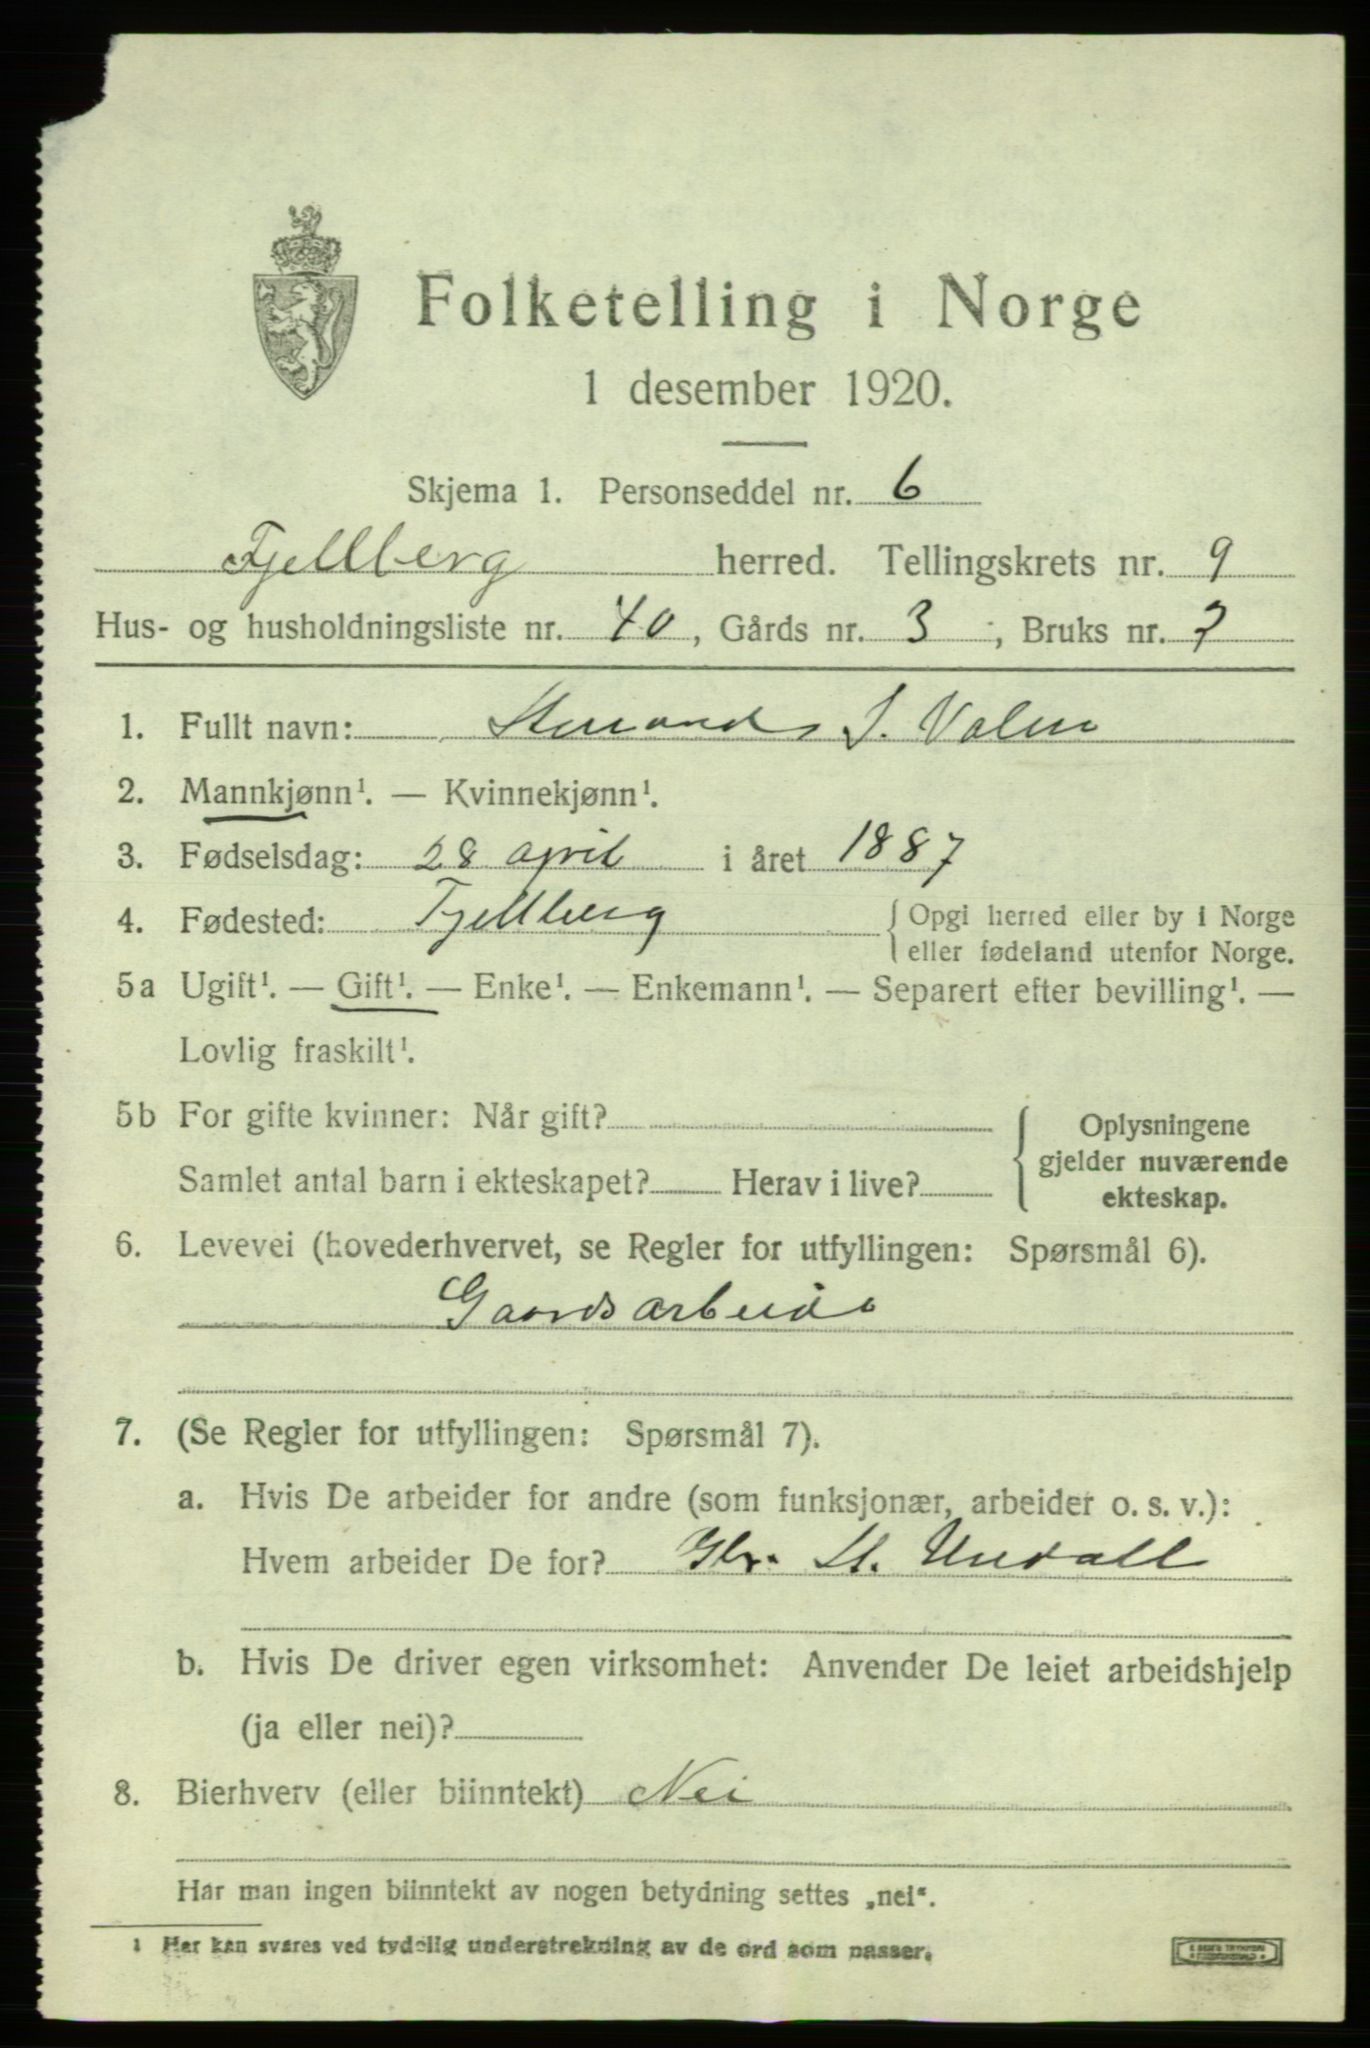 Folketelling i Norge
1 desember 1920.
Skjema 1. Personseddel nr. 6
Fjellberg herred. Tellingskrets nr. 9
Hus- og husholdningsliste nr. 40, Gårds nr. 3, Bruks nr. 7
1. Fullt navn: S. Valen
2. Mannkjønn¹. — Kvinnekjønn¹.
3. Fødselsdag: 28 april i året 1887
4. Fødested: Fjellberg { Opgi herred eller by i Norge
eller fødeland utenfor Norge.
5a Ugift¹. — Gift¹. — Enke¹. — Enkemann¹. — Separert efter bevilling¹. —
Lovlig fraskilt¹.
5b For gifte kvinner: Når gift?
Samlet antal barn i ekteskapet? Herav i live?
Oplysningene
gjelder nuværende
ekteskap.
6. Levevei (hovederhvervet, se Regler for utfyllingen: Spørsmål 6).
Gaardsarbeide
7. (Se Regler for utfyllingen: Spørsmål 7).
a. Hvis De arbeider for andre (som funksjonær, arbeider o. s. v.):
Hvem arbeider De for? Gbr. St. Undall
b. Hvis De driver egen virksomhet: Anvender De leiet arbeidshjelp
(ja eller nei)?
8. Bierhverv (eller biinntekt) Nei
Har man ingen biinntekt av nogen betydning settes „nei“.
1 Her kan svares ved tydelig understrekning av de ord som passer.